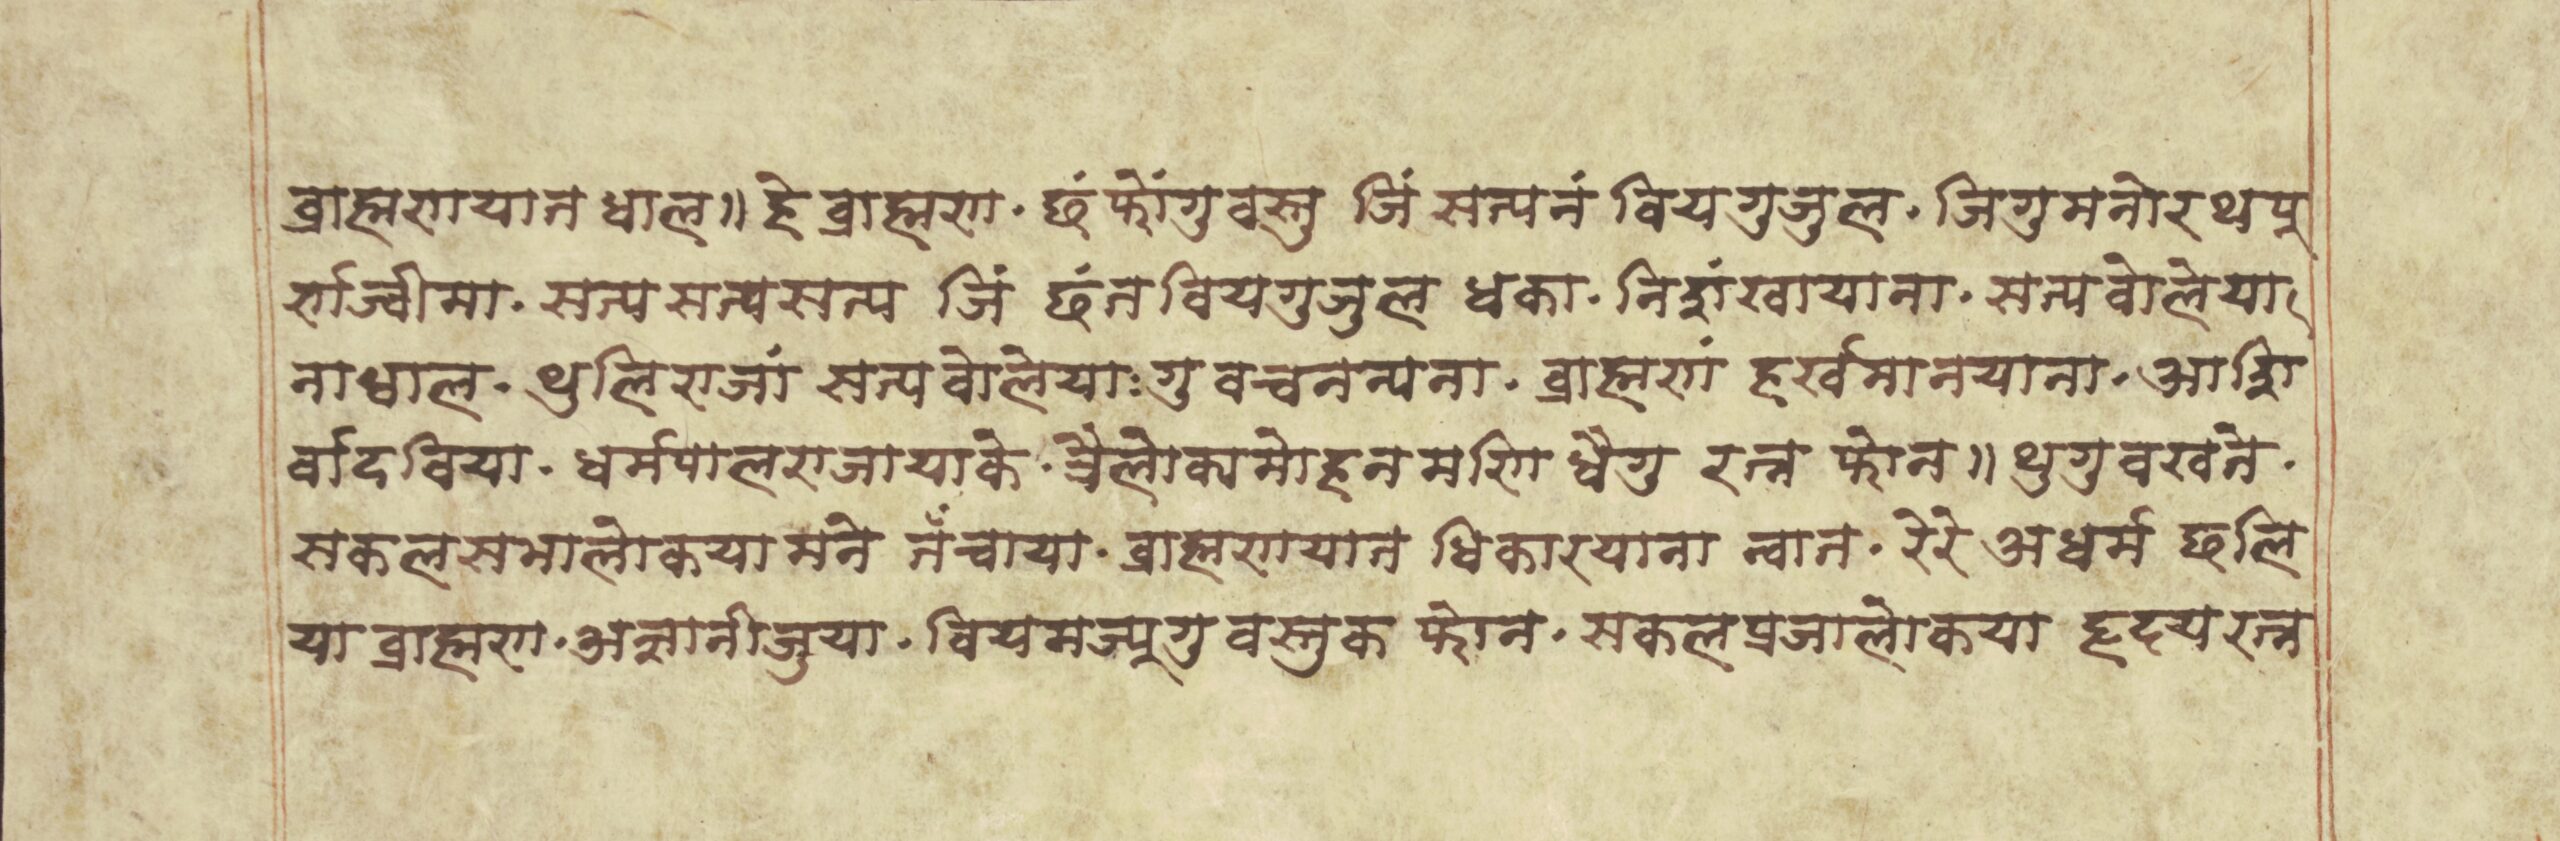 ब्राह्मणयात धाल॥ हे ब्राह्मण. छं फोंगु वस्तु जिं सत्यनं वियगुजुल. जिगुमनोरथपू
र्णज्वीमा. सत्यसत्यसत्य जिं छंत वियगुजुल धका. निशंखायाना. सत्यवोलेया
नाधाल. थुलि राजां सत्यवोलेयाःगु वचनन्यना. ब्राह्मणं हर्खमानयाना. आशि
र्वादविया. धर्मपालराजायाके. त्रैलोक्यमोहनमणि धैगु रत्न फोन॥ थुगुवखते.
सकलसभालोकयामने तँचाया. ब्राह्मणयात धिकारयाना च्वान. रेरे अधर्म छलि
या ब्राह्मण. अज्ञानीजुया. वियमज्यूगु वस्तुक फोन. सकलप्रजालोकया हृदयरत्न